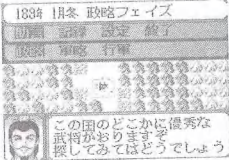 189年 1月冬 政略フェイズ
計画 記録 設定 終了
政務 軍略 行軍
この国のどこかに優秀な
武将がおりますぞ
探してみてはどうでしょう